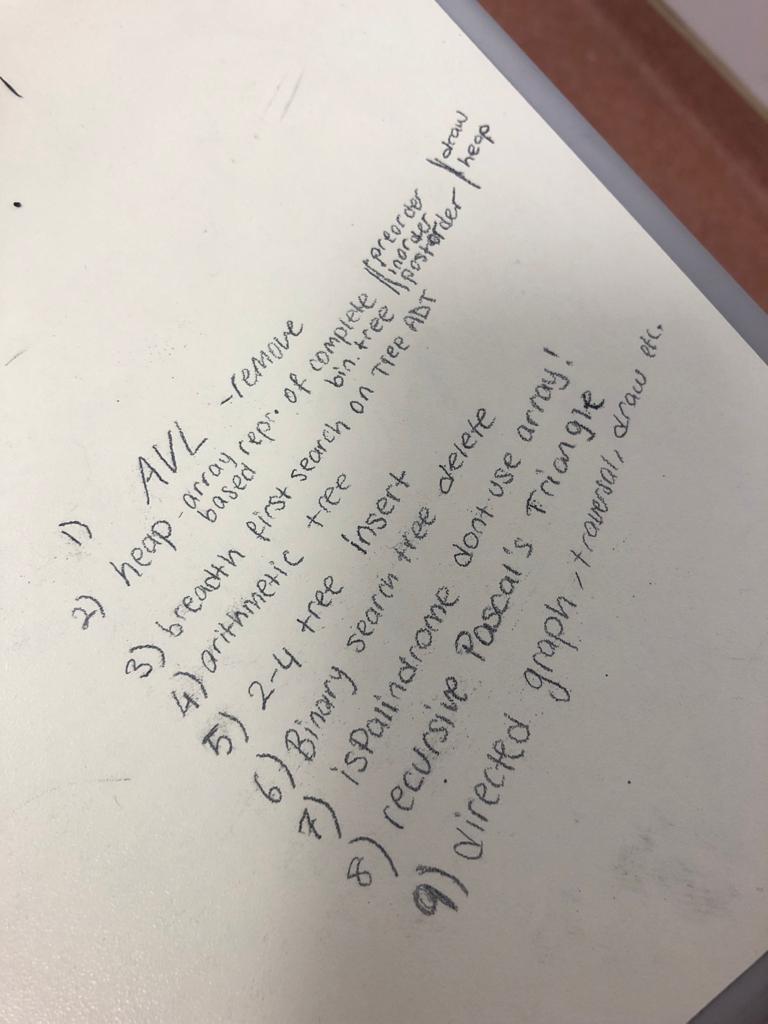 1) AVL -remove
2) heap -array repr. of complete / preorder / draw
based bin. tree / inorder heap
postorder
3) breadth first search on Tree ADT
4) arithmetic tree
5) 2-4 tree insert
6) Binary search tree delete
7) isPalindrome dont use array!
8) recursive Pascal's Triangle
9) directed graph, traversal, draw etc.